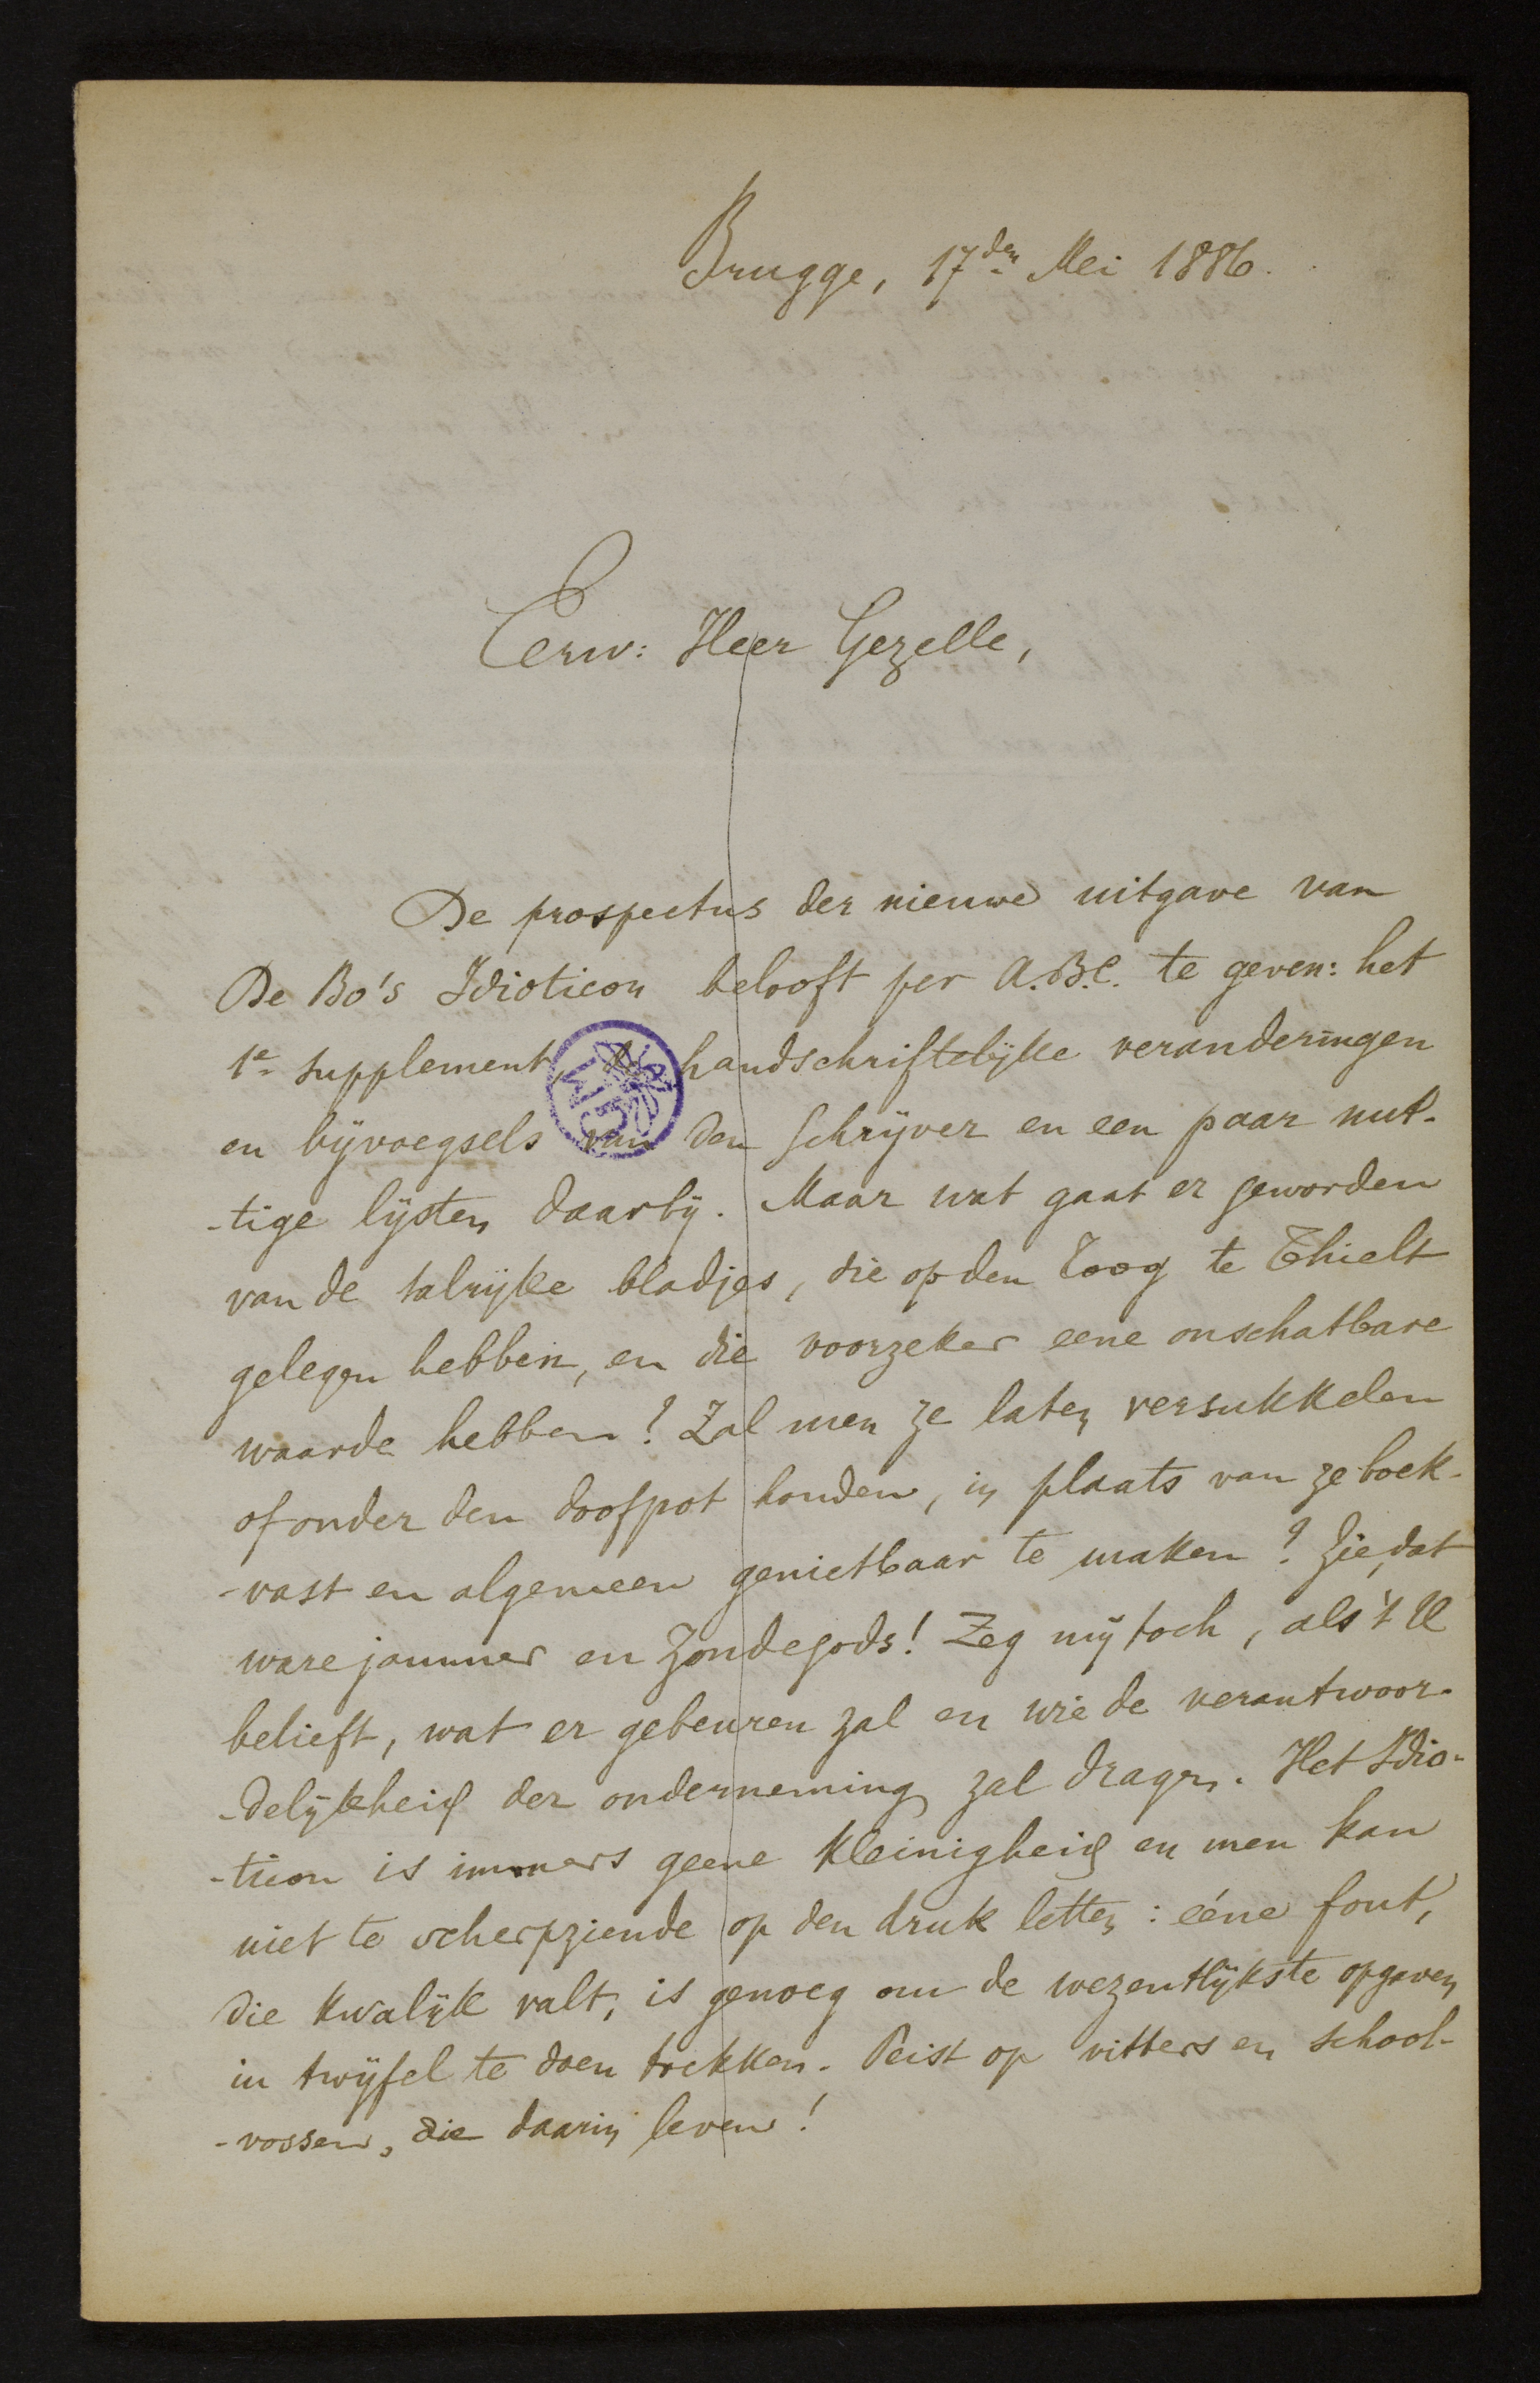 Brugge, 17den Mei 1886.
Eerw: Heer Gezelle,
De prospectus der nieuwe uitgave van
De Bo's Idioticon belooft per A.B.C. te geven: het
1e supplement, handschriftelijke veranderingen
en bijvoegsels van den schrijver en een paar nut-
-tige lijsten daarbij. Maar wat gaat er geworden
van de talrijke bladjes, die op den Toog te Thielt
gelegen hebben, en die voorzeker eene onschatbare
waarde hebben? Zal men ze laten versukkelen
of onder den doofpot houden, in plaats van ze boek-
-vast en algemeen genietbaar te maken? Zie, dat
ware jammer en zonde gods! Zeg mij toch, als 't U
belieft, wat er gebeuren zal en wie de verantwoor-
-delijkheid der onderneming zal dragen. Het Idio-
-ticon is immers geene kleinigheid en men kan
niet te scherpziende op den druk letten: ééne fout,
die kwalijk valt, is genoeg om de wezentlijkste opgaven
in twijfel te doen trekken. Peist op vitters en school-
-vossen, die daarin leven!